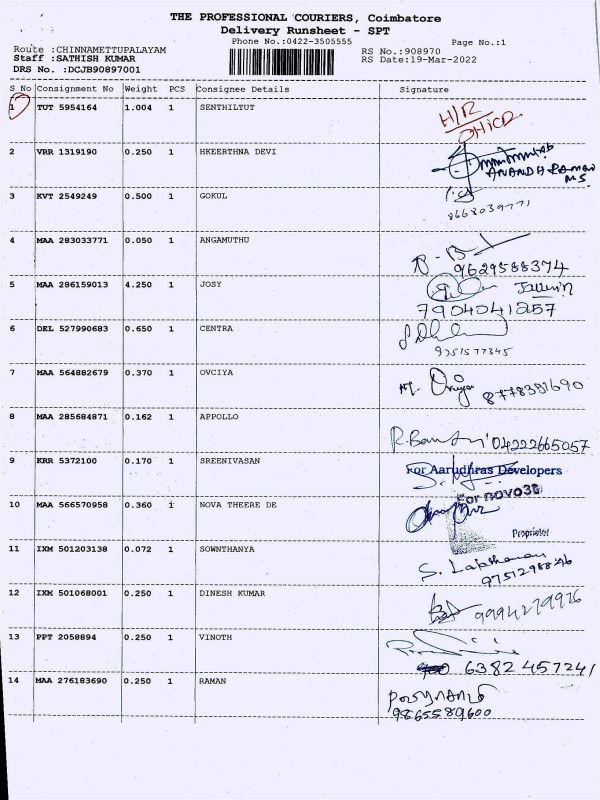 THE PROFESSIONAL COURIERS, Coimbatore
Delivery Runsheet - SPT
Phone No.:0422-3505555 Page No.:1
Route :CHINNAMETTUPALAYAM RS No.:908970
Staff :SATHISH KUMAR RS Date:19-Mar-2022
DRS No. :DCJB90897001
S No Consignment No Weight PCS Consignee Details Signature
1 TUT 5954164 1.004 1 SENTHILTUT
H/R
2 VRR 1319190 0.250 1 HKEERTHNA DEVI
ANANDH RAMAN
M.S.
3 KVT 2549249 0.500 1 GOKUL
8668039771
4 MAA 283033771 0.050 1 ANGAMUTHU
9629588374
5 MAA 286159013 4.250 1 JOSY
7904041257
6 DEL 527990683 0.650 1 CENTRA
9251577345
7 MAA 564882679 0.370 1 OVCIYA
8778381690
8 MAA 285684871 0.162 1 APPOLLO
04222665057
9 KRR 5372100 0.170 1 SREENIVASAN
For Aarudhras Developers
For novo3D
10 MAA 566570958 0.360 1 NOVA THEERE DE
Proprietor
11 IXM 501203138 0.072 1 SOWNTHANYA
9751298876
12 IXM 501068001 0.250 1 DINESH KUMAR
9994279926
13 PPT 2058894 0.250 1 VINOTH
6382457241
14 MAA 276183690 0.250 1 RAMAN
9865589600